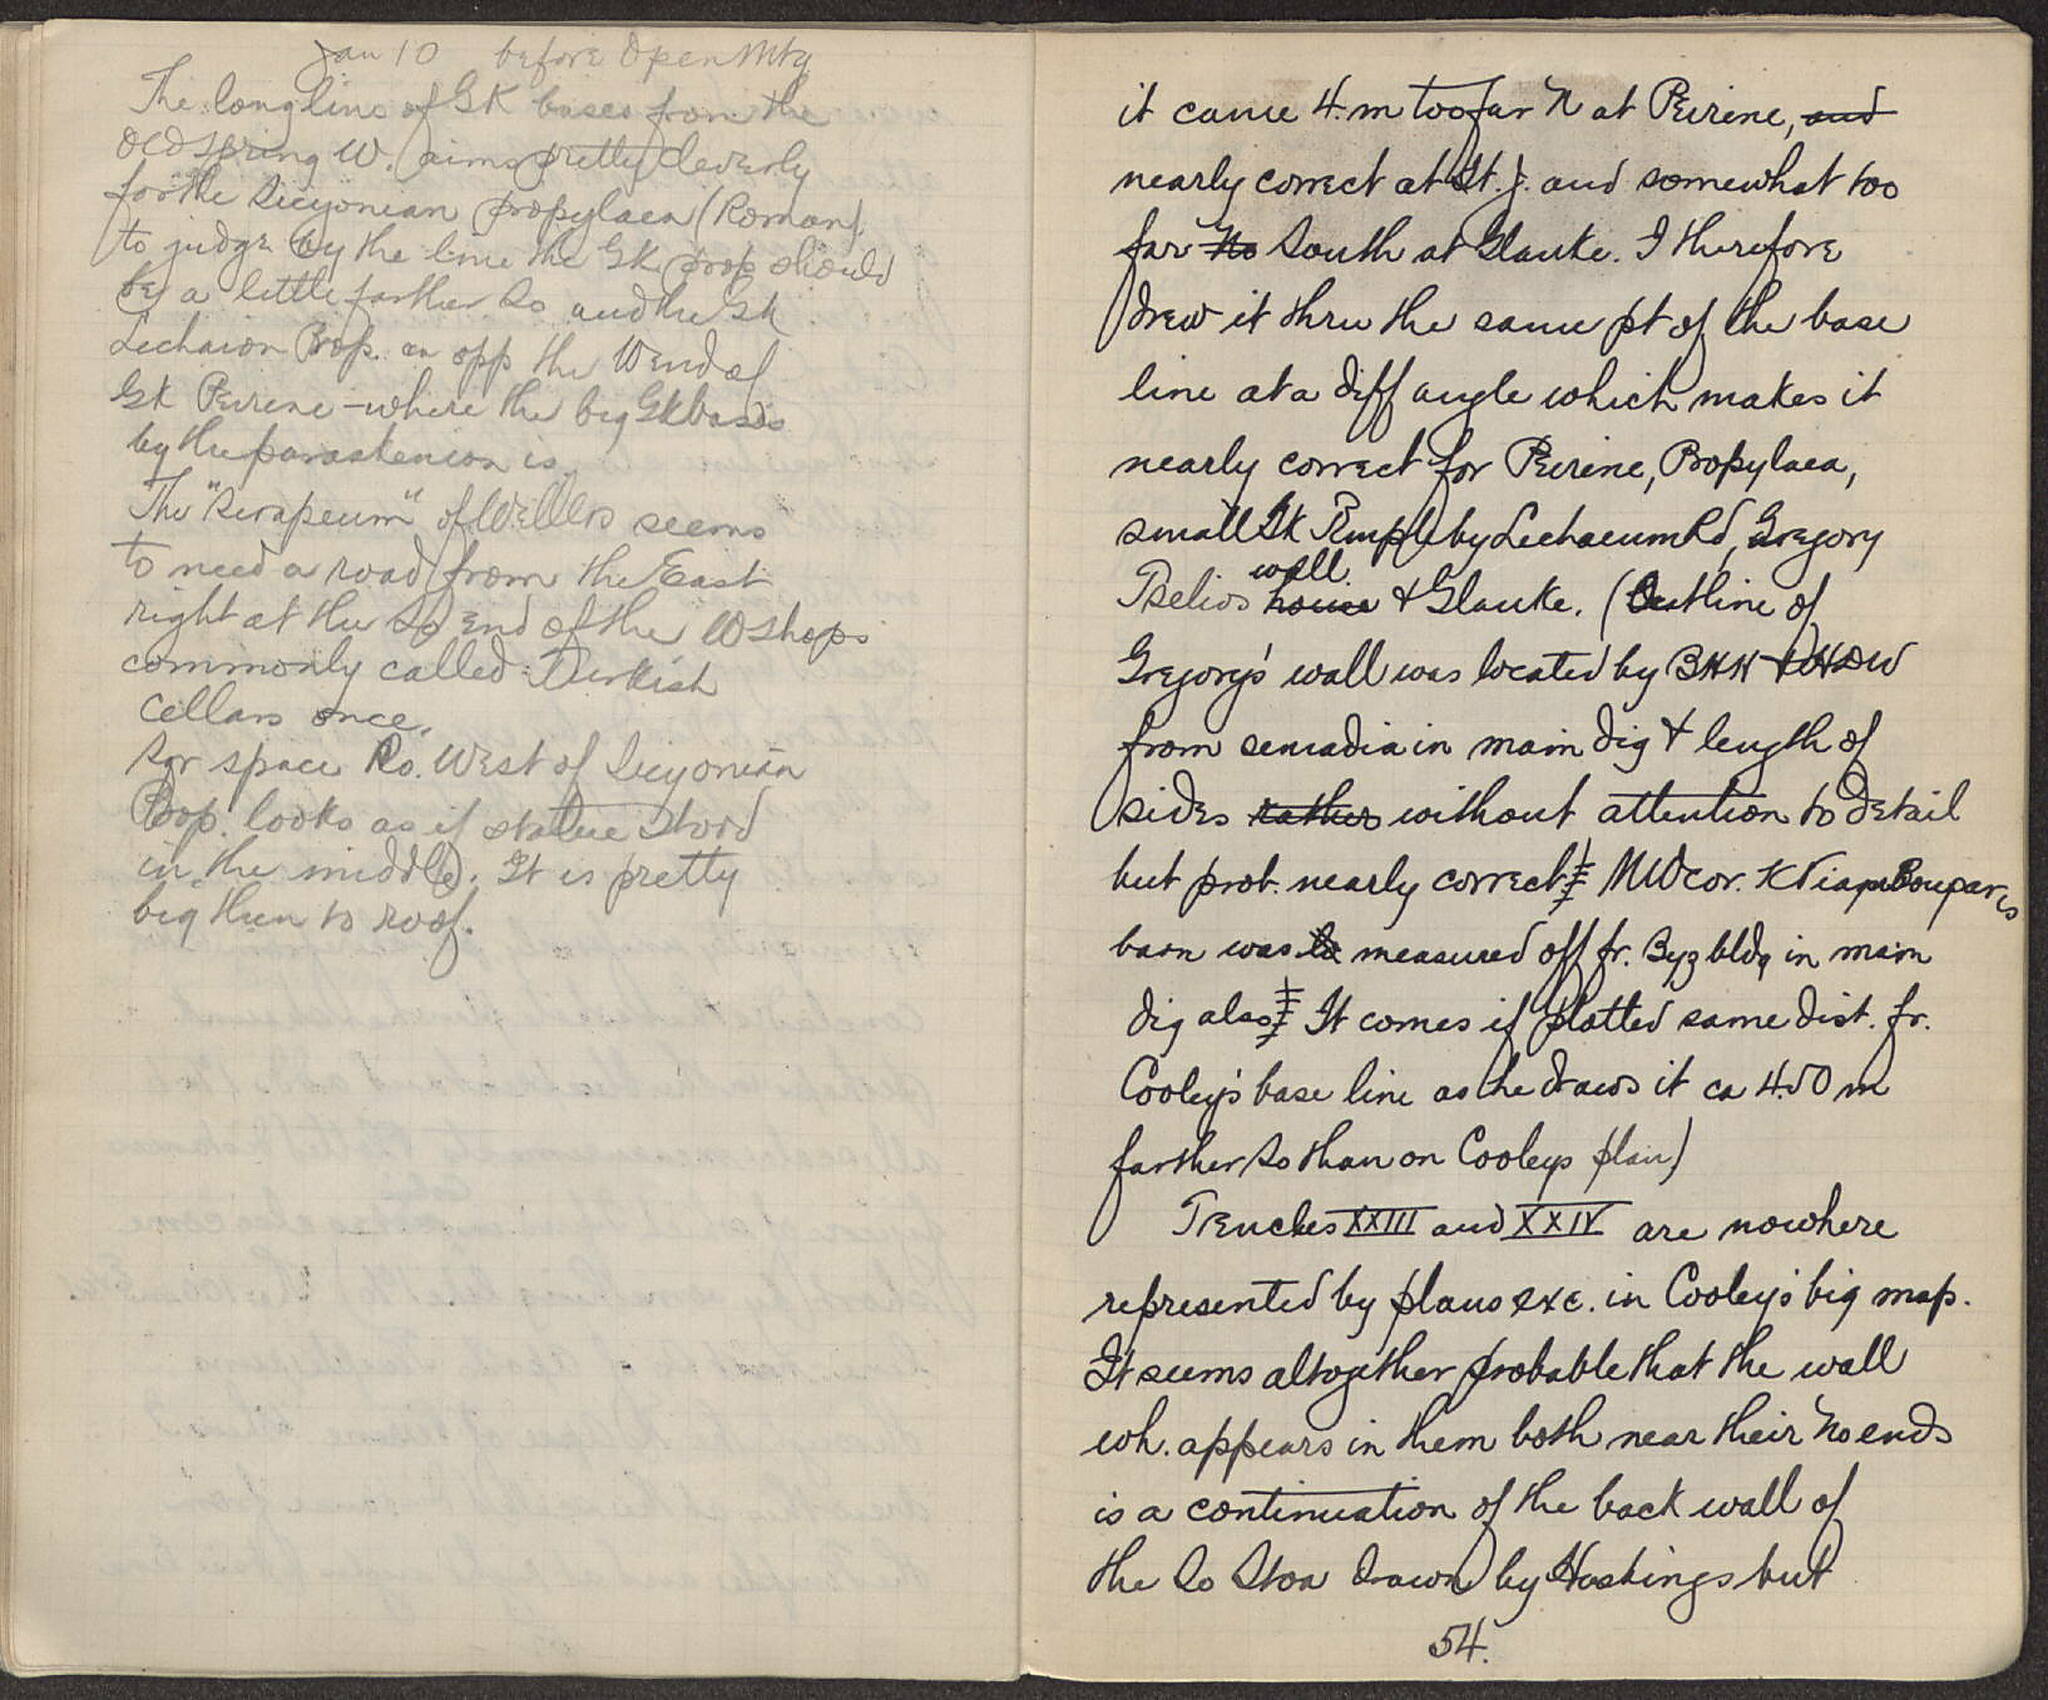 Jan 10 before Open Mtg
The long line of GK bases from the
Old Spring W. aims pretty cleverly
for the Sicyonian propylaea (Roman)
to judge by the line the Gk prop should
be a little farther So and the Gk
Lechaion Prop. on opp the W end of
Gk Peirene - where the big Gk basis
by the paraskenion is.
The "Serapeum" of Wellers seems
to need a road from the East
right at the So End of the W shops
commonly called Turkish
cellars once.
Sqr space So. West of Sicyonian
Prop. looks as if statue stood
in the middle. It is pretty
big then to roof.
it came 4.m too far N at Peirene, and
nearly correct at St. J. and somewhat too
far No South at Glauke. I therefore
drew it thru the same pt of the base
line at a diff angle which makes it
nearly correct for Peirene, Propylaea,
small Gk Temple by Lechaeum Rd, Gregory
wall
Tselios house & Glauke. (Outline of
Gregory's wall was located by BHH +
from semadia in main dig & length of
sides rather without attention to detail
but prob. nearly correct NW cor.
barn was measured off fr. Byz bldg in main
dig also It comes if plotted same dist. fr.
Cooley's base line as he draws it ca 4.50 m
farther So than on Cooleys plan)
Trenches XXIII and XXIV are nowhere
represented by plans exc. in Cooley's big map.
It seems altogether probable that the wall
wh. appears in them both near their No ends
is a continuation of the back wall of
the So Stoa drawn by Hastings but
54.